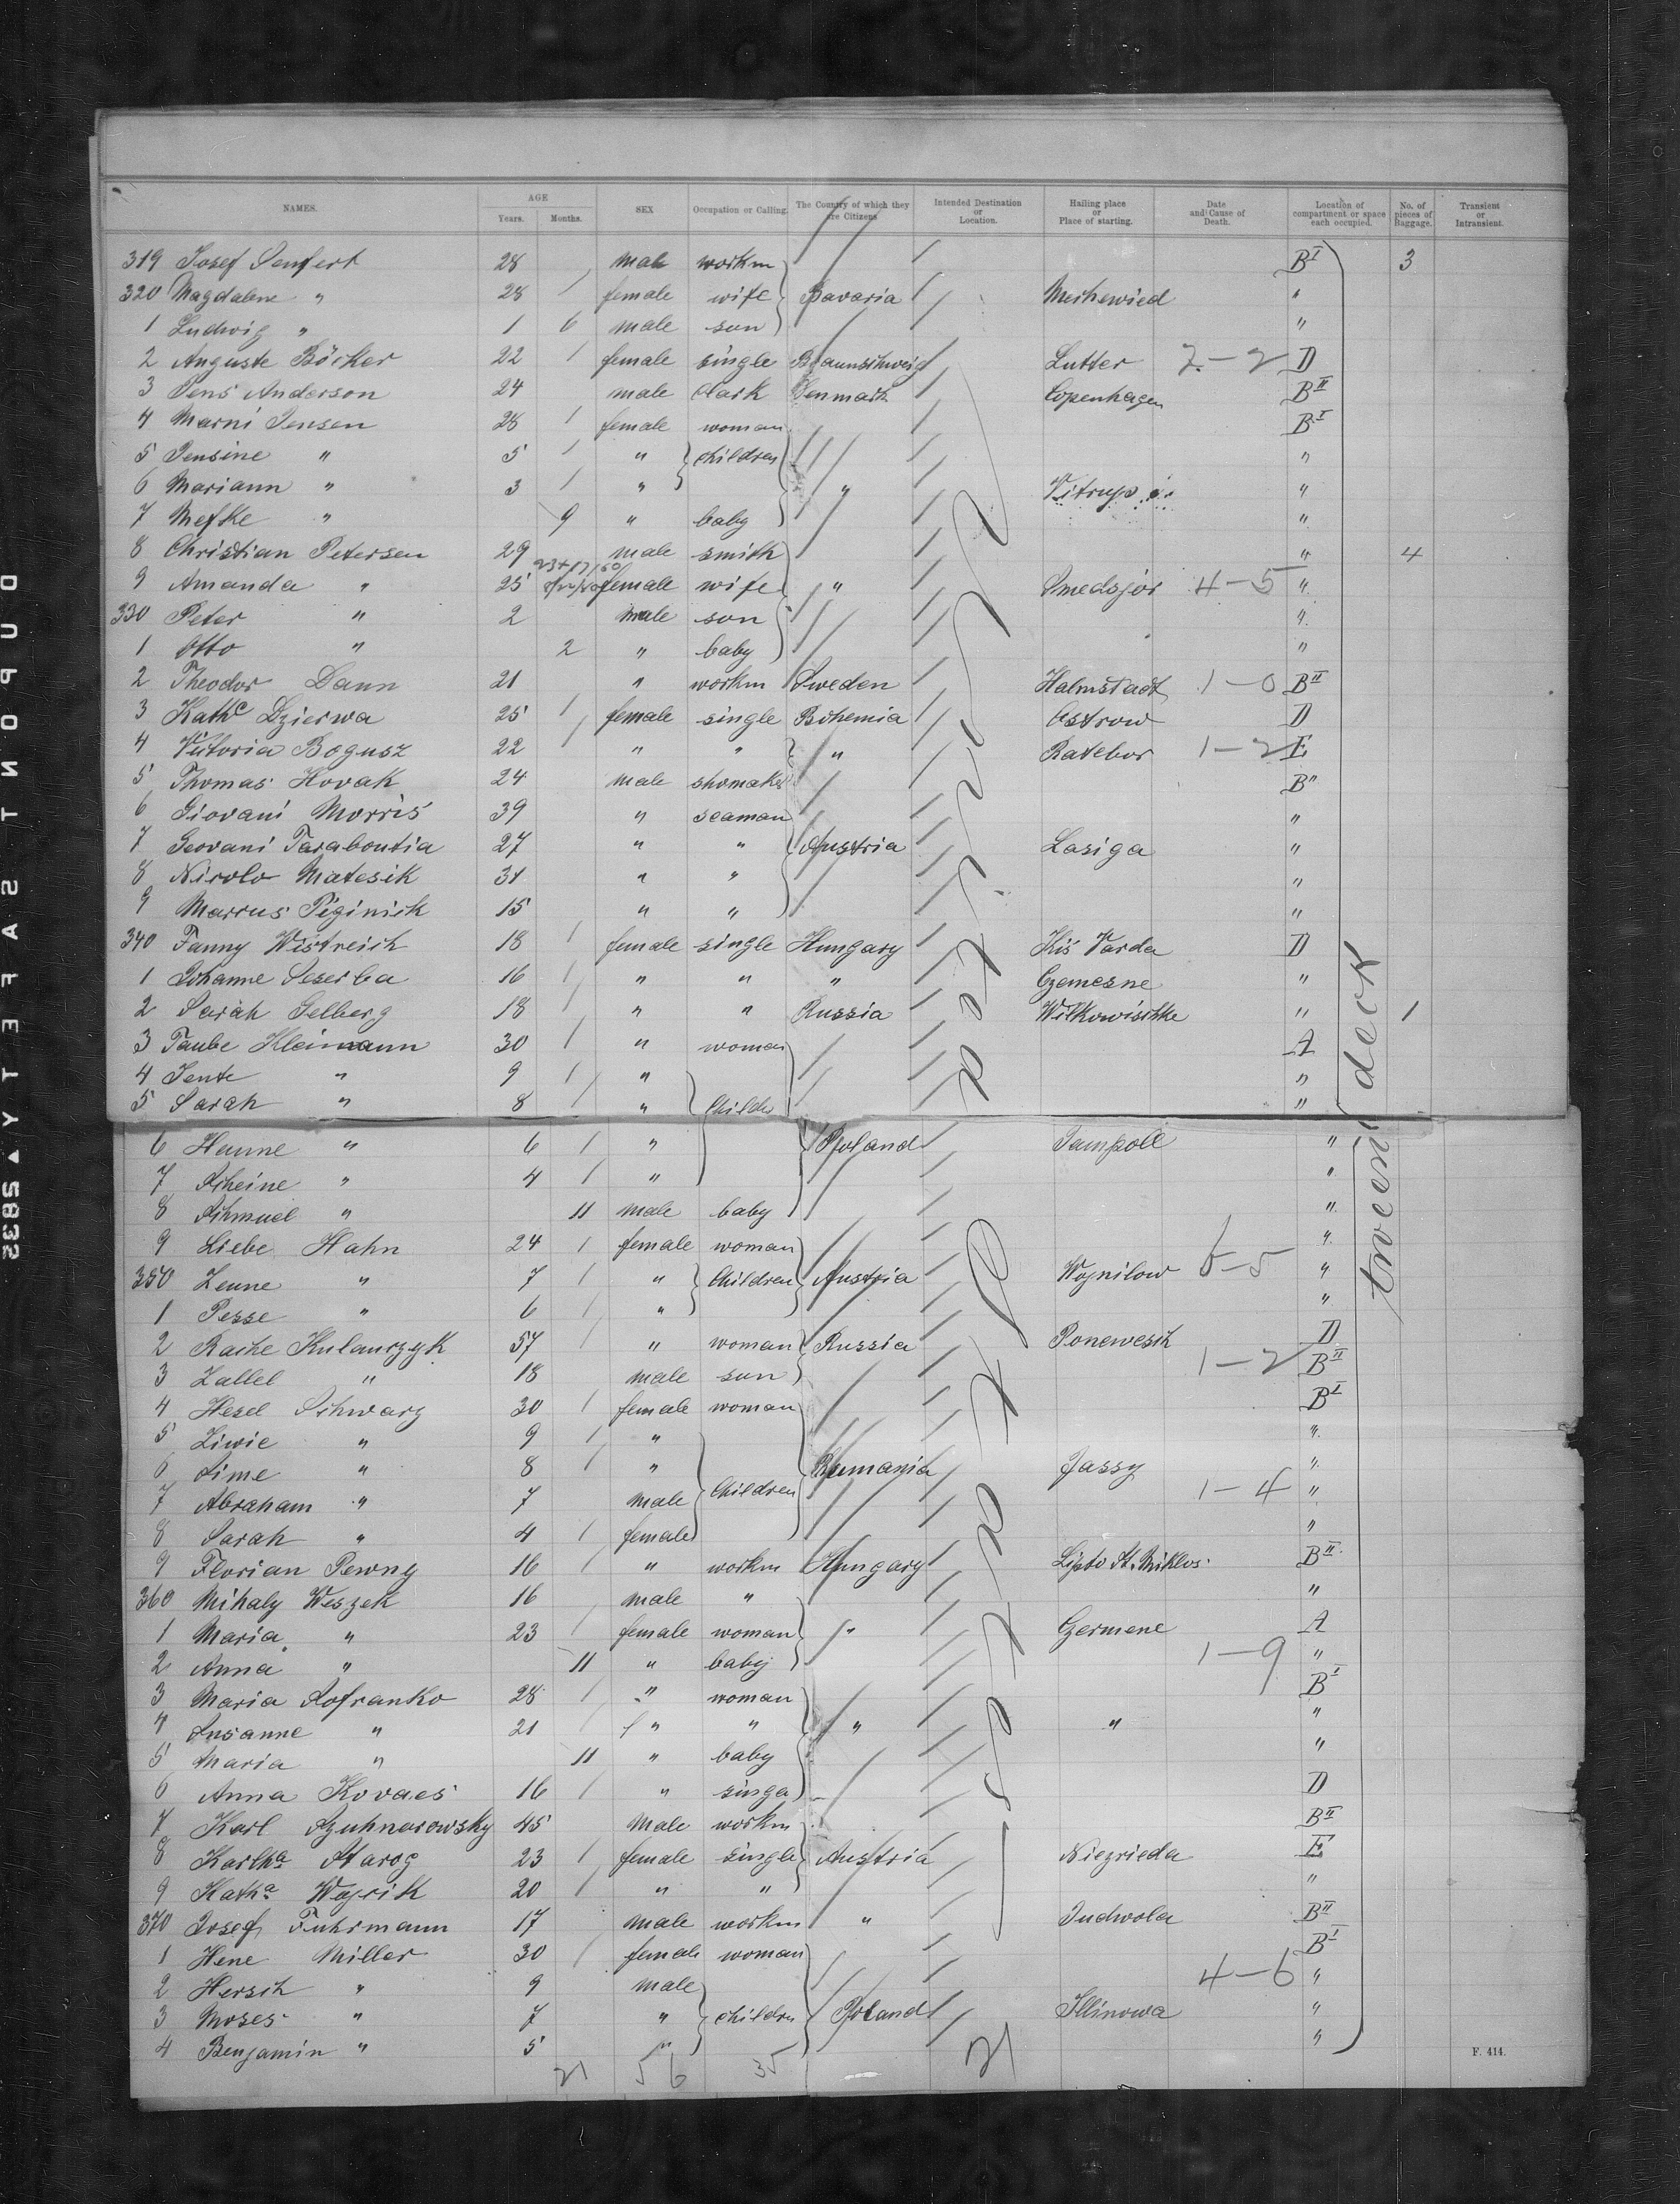 NAMES. AGE Years. Months. SEX Occupation or Calling. The Country of which they are Citizens Intended Destination or Location. Hailing place or Place of starting. Date and Cause of Death. Location of compartment or space each occupied. No. of pieces of Baggage. Transient or Intransient.
319 Josef Senfert 28 male workm B I 3
320 Magdalene " 28 / female wife Bavaria "
1 Ludwig " 1 6 male son "
2 Auguste Böcker 22 / female single Braunschweig Lutter 7-2 D
3 Jens Anderson 24 male Clark Denmark Copenhagen B II
4 Marni Jensen 28 / female woman B I
5 Jensine " 5 / " children "
6 Mariann " 3 / " " Vitrup "
7 Mefke " 9 " baby "
8 Christian Petersen 29 male smith " 4
9 Amanda " 25 female wife " Smedsjor 4-5 "
330 Peter " 2 male son "
1 Otto " 2 " baby "
2 Theodor Dann 21 " workm Sweden Halmstadt 1-0 B II
3 Kathe Dzierwa 25 / female single Bohemia Ostrow D
4 Victoria Bogusz 22 / " " " Ratebor 1-2 E
5 Thomas Hovak 24 male shomaker B"
6 Giovani Morris 39 " seaman "
7 Geovani Taraboutia 27 " " Austria Lasiga "
8 Nicolo Matesik 31 " " "
9 Marcus Piginich 15 " " "
340 Fanny Wistreich 18 / female single Hungary Kis Varda D
1 Johanne 16 / " " " Czemesne "
2 Sarah Gelberg 18 / " " Russia Wilkowischke " 1
3 Taube Kleimann 30 / " woman A
4 Jente " 9 / " "
5 Sarah " 8 / " Childr "
6 Hanne " 6 / " Poland Jampoll "
7 Scheine " 4 / " "
8 Schmuel " 11 male baby "
9 Liebe Hahn 24 / female woman "
350 Zenne " 7 / " Children Austria Wojnilow 6-5 "
1 Pesse " 6 / " "
2 Rache Kulanczyk 57 / " woman Russia Ponewesch D
3 Zallel " 18 male son 1-2 B II
4 Hesel Schwarz 30 / female woman B I
5 Ziwie " 9 / " "
6 Sime " 8 / " Rumania Jassy "
7 Abraham " 7 male Children 1-4 "
8 Sarah " 4 / female "
9 Florian Pewny 16 / " workm Hungary Lipto St. Miklos B II
360 Mihaly Weszek 16 male " "
1 Maria " 23 / female woman " Germene A
2 Anna " 11 " baby 1-9 "
3 Maria Sofranko 28 / " woman B I
4 Susanne " 21 / " " " " "
5 Maria " 11 " baby "
6 Anna Kovacs 16 / " singa D
7 Karl Szuhnarowsky 45 male workm B II
8 Kartha Starog 23 / female single Austria Niezrieda E
9 Katha Wojcik 20 / " " "
370 Josef Fuhrmann 17 male workm " Judwola B II
1 Hene Miller 30 / female woman B I
2 Hersch " 9 male 4-6 "
3 Moses " 7 " childrn Poland Illinowa "
4 Benjamin " 5 " "
21 56 35 21
tween deck
F. 414.
DUPONT SAFETY 5835